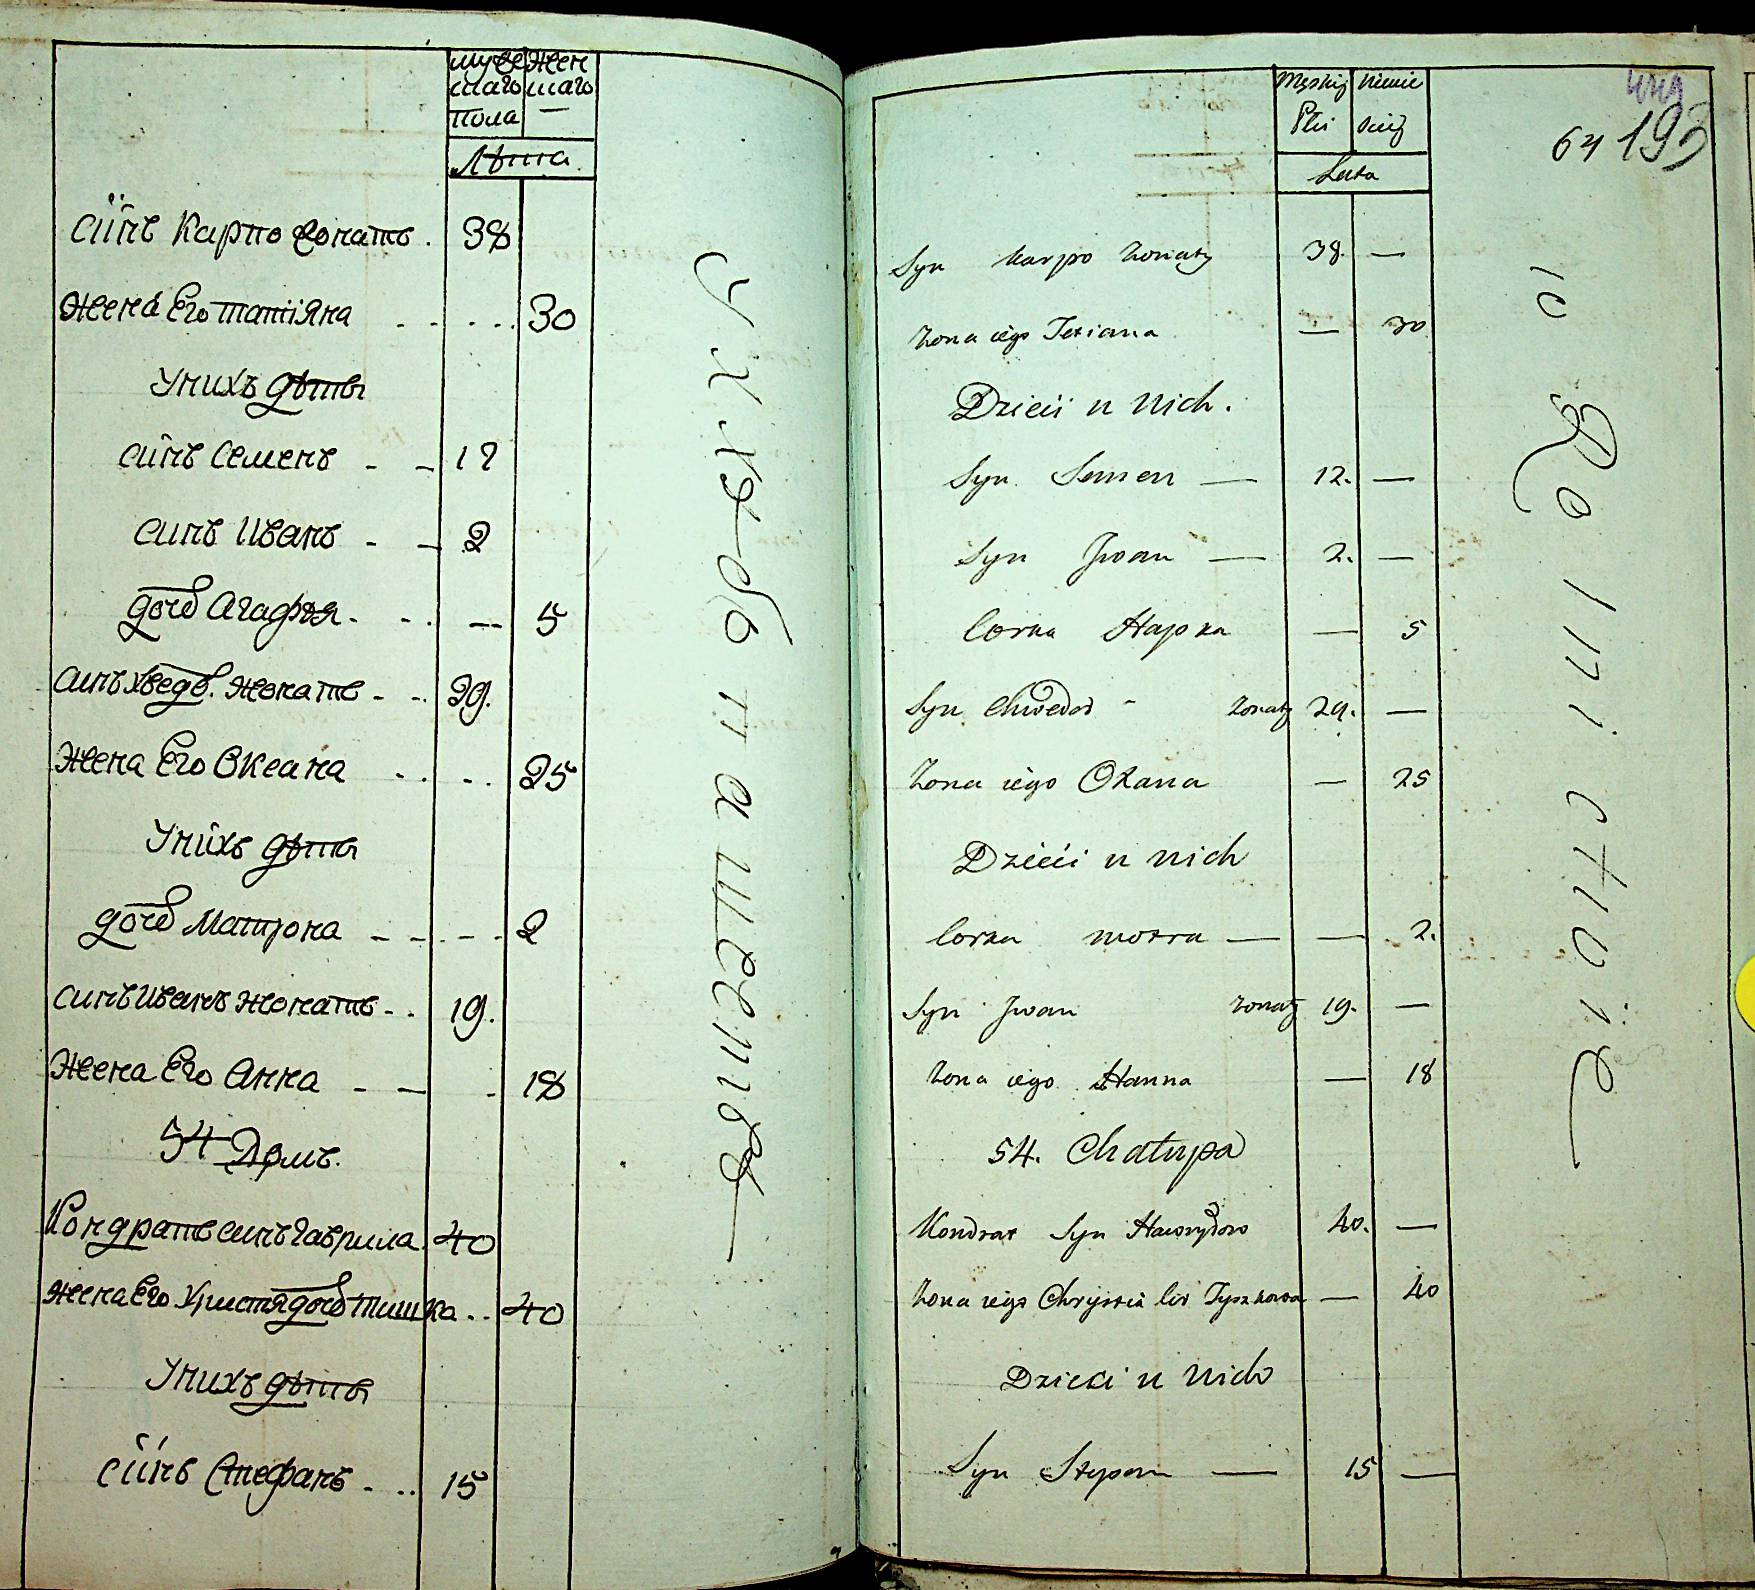 мужескаго женскаго
пола —
Лѣта
Сынъ Карпо жонатъ . 38
Жена Его Татіяна . . . . . 30
У нихъ дѣты
Сынъ Семенъ - - 12
Синъ Иванъ - - 2
дочъ Агафия - . . -- 5
Синъ Хведъ. жонатъ - . . 29.
Жена Его Океана . . . . 25
У нихъ дѣты
дочъ Матрона - - . - . 2
Синъ Иванъ жонатъ - . . 19.
Жена Его Анна - — - 18
54 Домъ.
Кондратъ синъ Гаврила. 40
Жена Его Христя дочъ Тишка . . 40
У нихъ дѣты
Сынъ Стефанъ - . . 15
Męskiej Niewieściej
Płci
Lata
64 193
Syn Karpo żonaty 38. —
Żona iego Tetiana — 30
Dzieci u Nich.
Syn Semen — 12. —
Syn Jwan — 2. —
Corka Hapka — 5
Syn Chwedor - żonaty 29. —
Żona iego Oxana — 25
Dzieci u nich
Corka motra — — 2.
Syn Jwan żonaty 19. —
Żona iego Hanna — 18
54. Chałupa
Kondrat Syn Hawryłow 40. —
Żona iego Chrystia Cor Tyszkowa — 40
Dzieci u Nich
Syn Stepan — 15 —